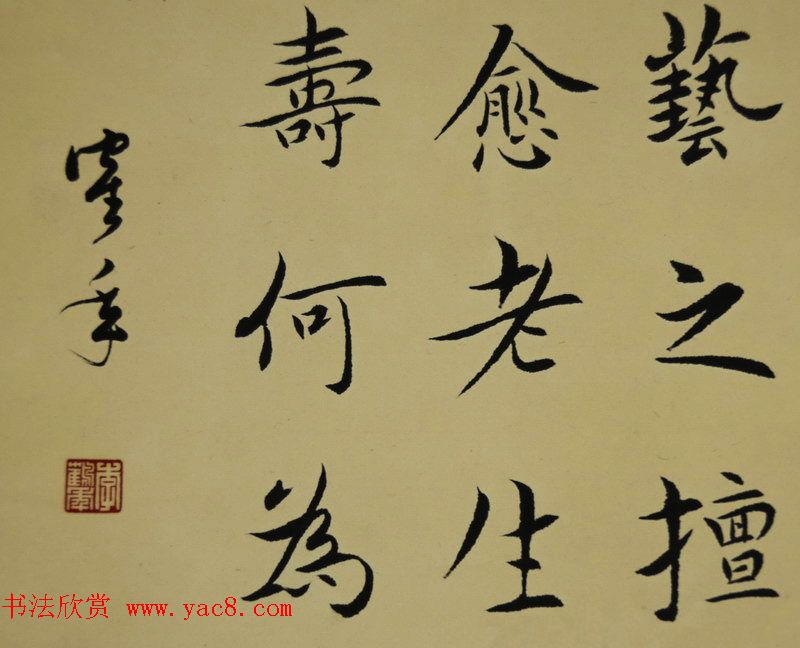 藝之擅
愈老生
壽何為
鶴年
李鶴年
书法欣赏 www.yac8.com